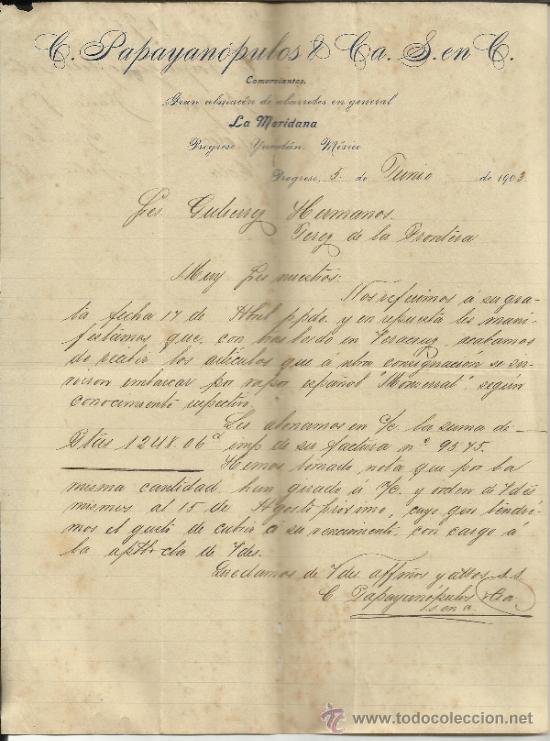 C. Papayanópulos & Ca. S. en C.
Comerciantes.
Gran almacén de abarrotes en general
La Meridana
Progreso Yucatán. México
Progreso, 5. de Junio de 1903.
Sres Gutierrez Hermanos.
Jerez de la Frontera
Muy Sres nuestros:
Nos referimos á su gra-
ta fecha 17 de Abril ppdo. y en repuesta les mani-
festamos que, con trasbordo en Veracruz, acabamos
de recibir los artículos que á ntra consignación se sir-
vieron embarcar por vapor español "Monserrat" según
conocimiento respectivo.
Les abonamos en C/c la suma de
Ptas 1248.06 imp de su factura nº 9575.
Hemos tomado nota que por la
misma cantidad han girado á n/c. y orden de Vdes
mismos al 15 de Agosto próximo, cuyo giro tendre-
mos el gusto de cubrir á su vencimiento, con cargo á
la de Vdes.
Quedamos de Vdes affmos y attos S.S.
C. Papayanópulos & Ca
S en C
todocoleccion
www.todocoleccion.net